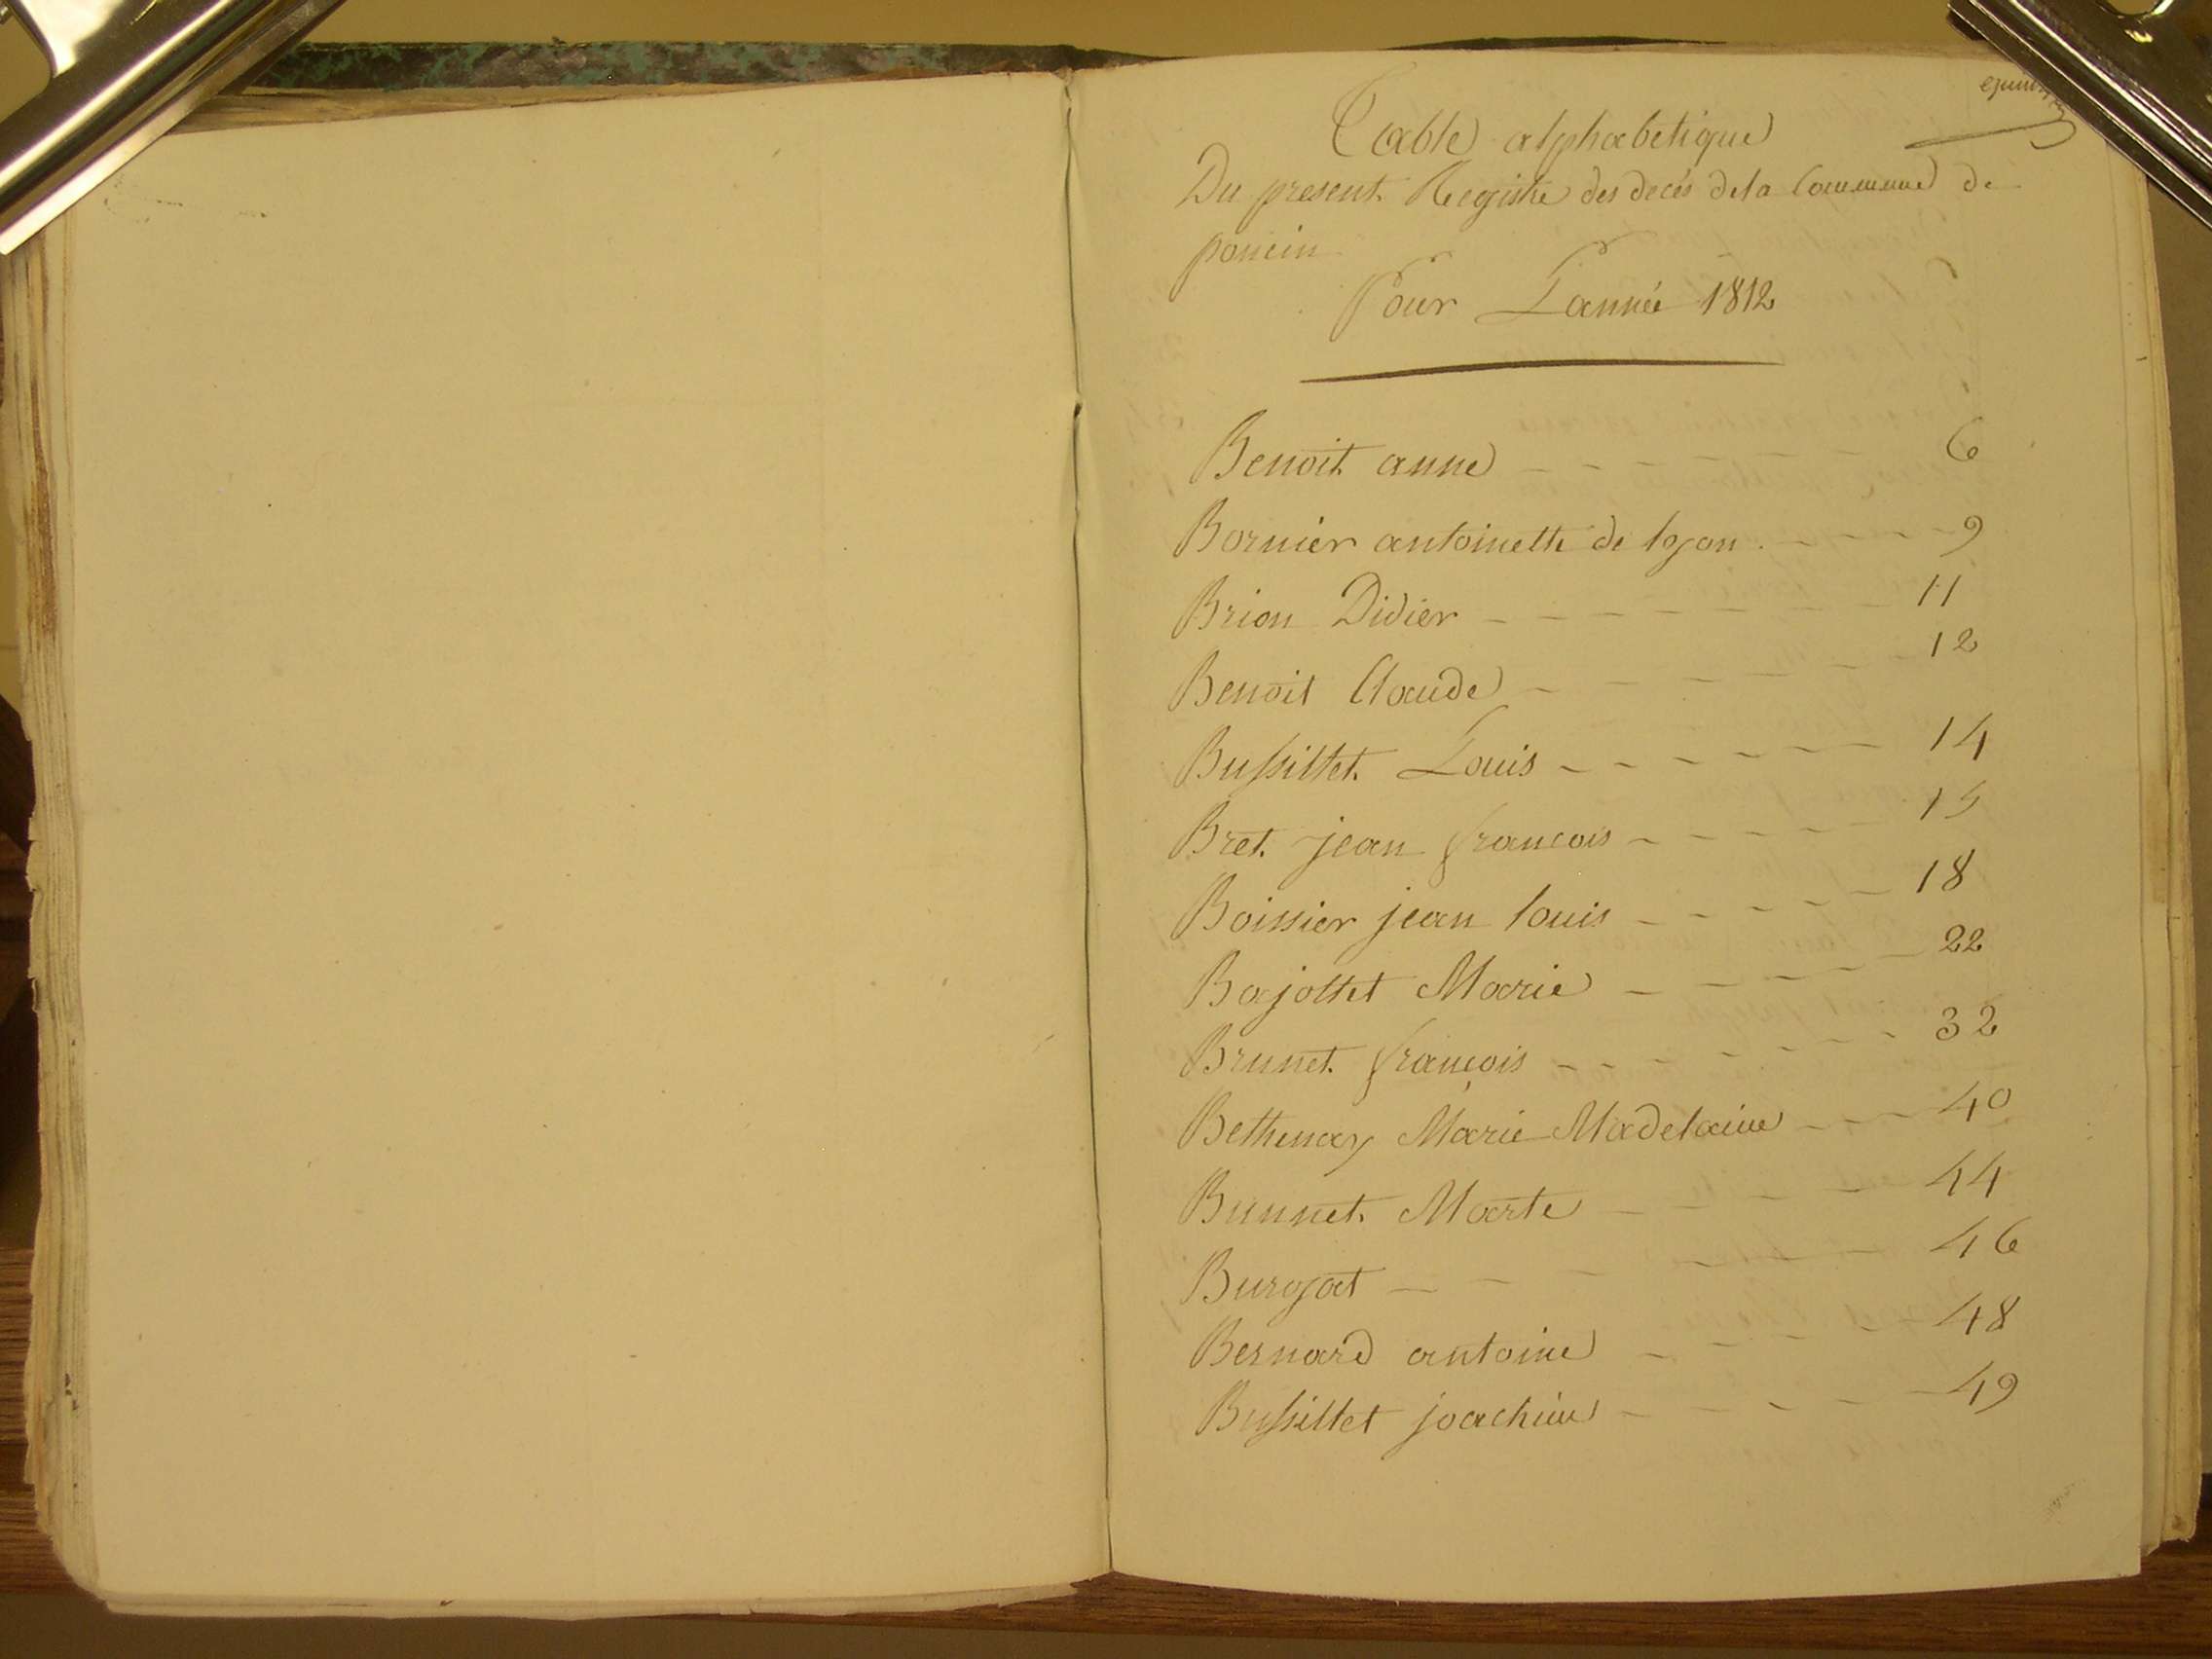 Table alphabetique
Du present Registre des decés de la Commune de
poncin
Pour L'année 1812
Benoit anne 6
Bornier antoinette de lyon 9
Brion Didier 11
Benoit Claude 12
Bussillet Louis 14
Bret jean francois 15
Boissier jean louis 18
Bajollet Marie 22
Brunet françois 32
Bethenay Marie Madelaine 40
Bunnet Marte 44
Buroyat 46
Bernard antoine 48
Bussillet joachim 49